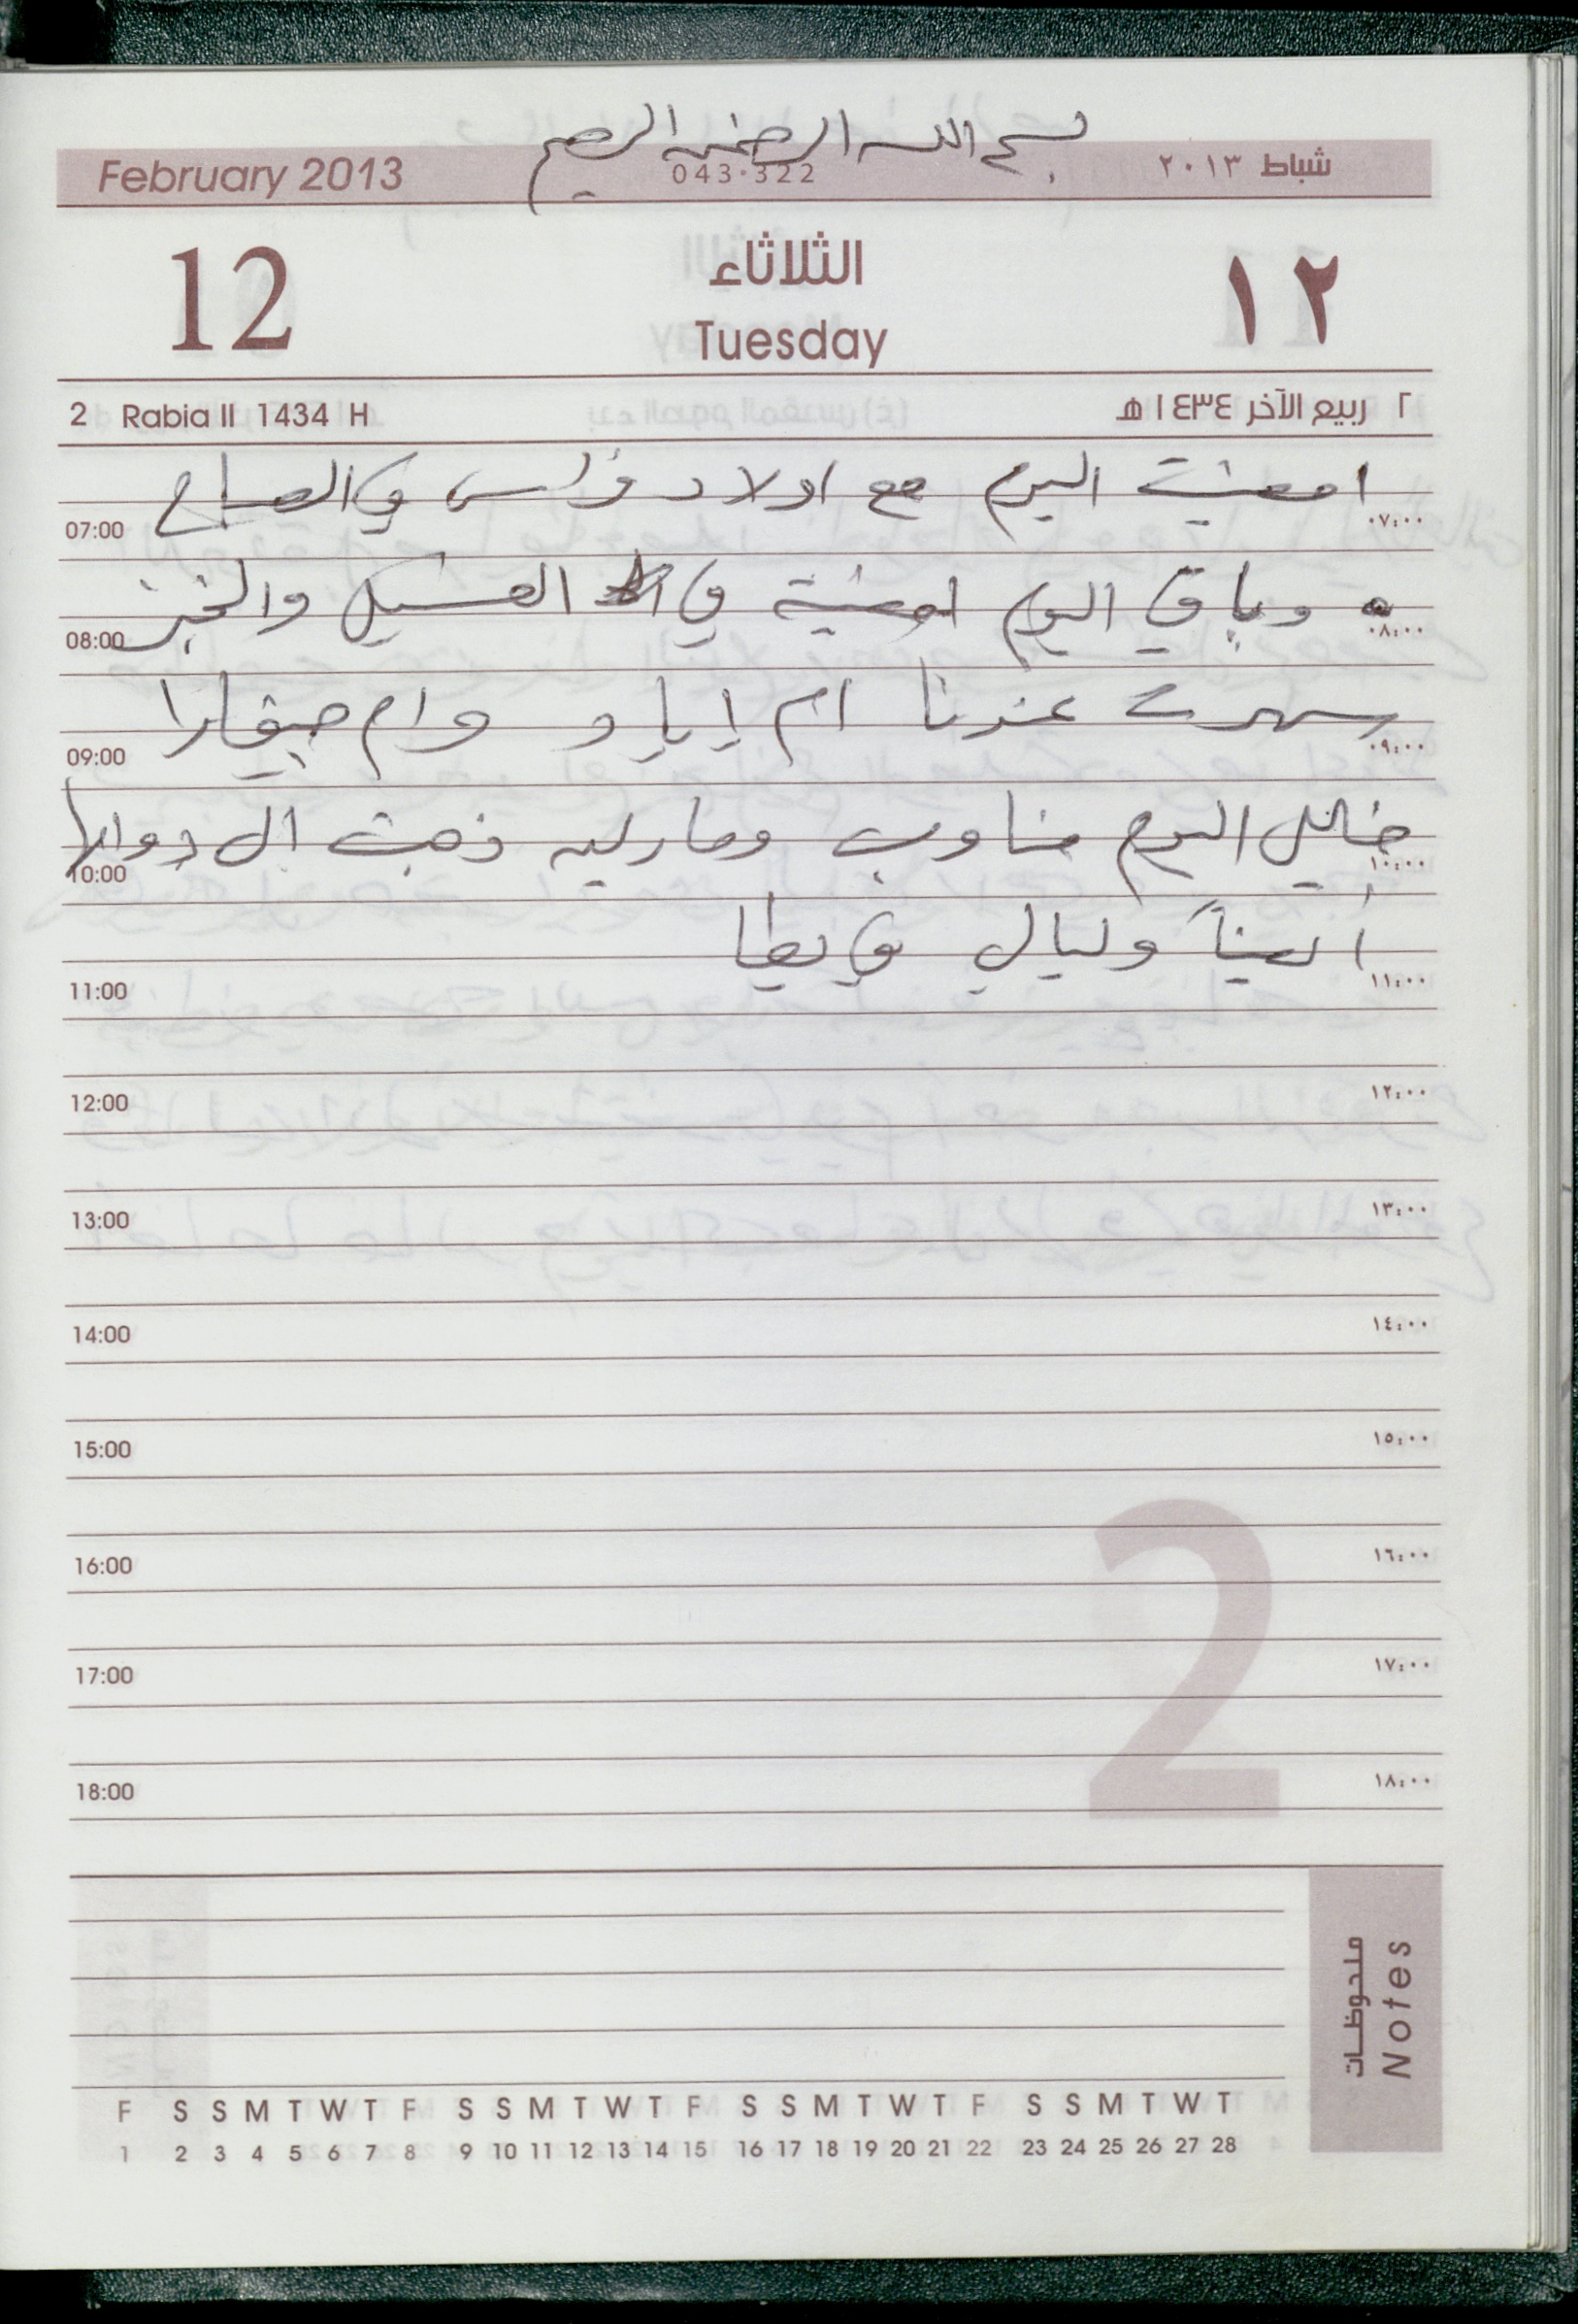 بسم الله الرحمن الرحيم
February 2013 043-322 شباط ٢٠١٣
12 الثلاثاء ١٢
Tuesday
2 Rabia II 1434 H ٢ ربيع الآخر ١٤٣٤ هـ
امضيت اليوم مع اولاد فراس في الصباح
07:00 ٠٧:٠٠
وباقي اليوم امضيت في الغسيل والخبز
08:00 ٠٨:٠٠
سهرت عندنا ام إياد وام
09:00 ٠٩:٠٠
اليوم مناوب وماريه ذهبت ال دوامها
10:00 ٠١٠:٠٠
ايضاً وليال
11:00 ١١:٠٠
12:00 ١٢:٠٠
13:00 ١٣:٠٠
14:00 ١٤:٠٠
15:00 ١٥:٠٠
16:00 ١٦:٠٠
17:00 ١٧:٠٠
18:00 ١٨:٠٠
2
ملحوظات
Notes
F S S M T W T F S S M T W T F S S M T W T F S S M T W T
1 2 3 4 5 6 7 8 9 10 11 12 13 14 15 16 17 18 19 20 21 22 23 24 25 26 27 28